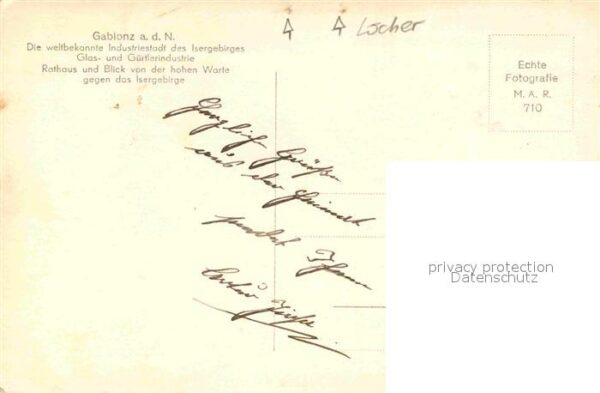 Gablonz a. d. N.
Die weltbekannte Industriestadt des Isergebirges
Glas- und Gürtlerindustrie
Rathaus und Blick von der hohen Warte
gegen das Isergebirge
Löcher
Echte
Fotografie
M. A. R.
710
Grüße
aus der Heimat
sendet Ihnen
privacy protection
Datenschutz